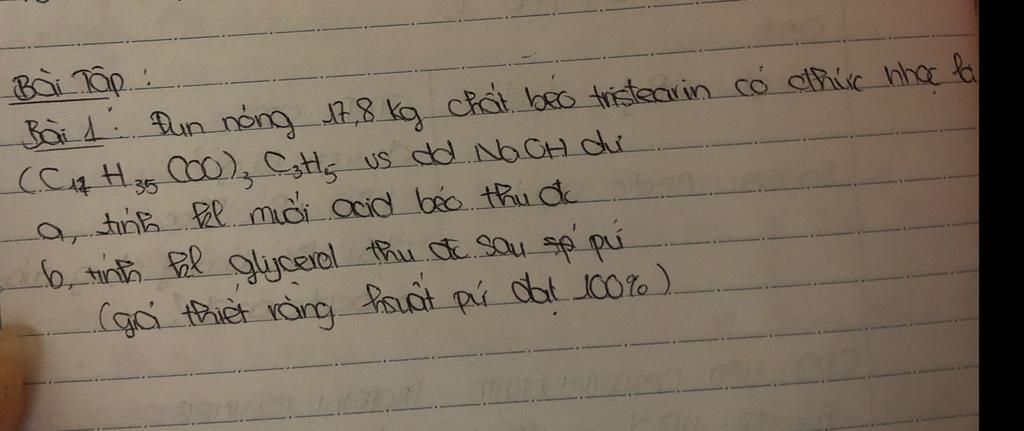 Bài Tập :
Bài 1 : Đun nóng 17,8 kg chất béo tristearin có cthức nhạc là
(C17 H35 COO)3 C3H5 vs dd NaOH dư
a, tính kl muối acid béo thu đc
b, tính kl glycerol thu đc sau pứ
(giả thiết rằng hsuất pứ đạt 100%)